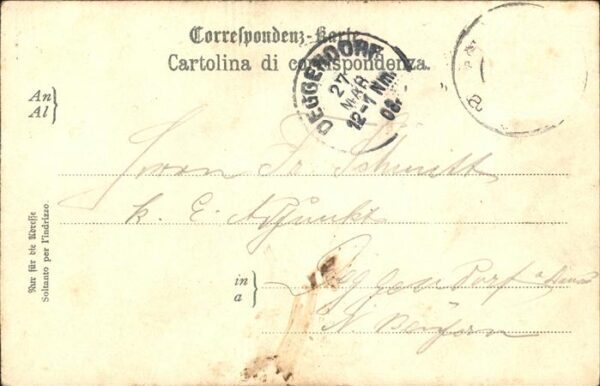 Correspondenz-Karte.
Cartolina di corrispondenza.
DEGGENDORF
27
MAR
12-1 Nm.
08.
An
Al
Herrn Fr Schmitt
k. E. Adjunkt
in
a
Deggendorf
N. Bayern
Nur für die Adresse
Soltanto per l'indirizzo